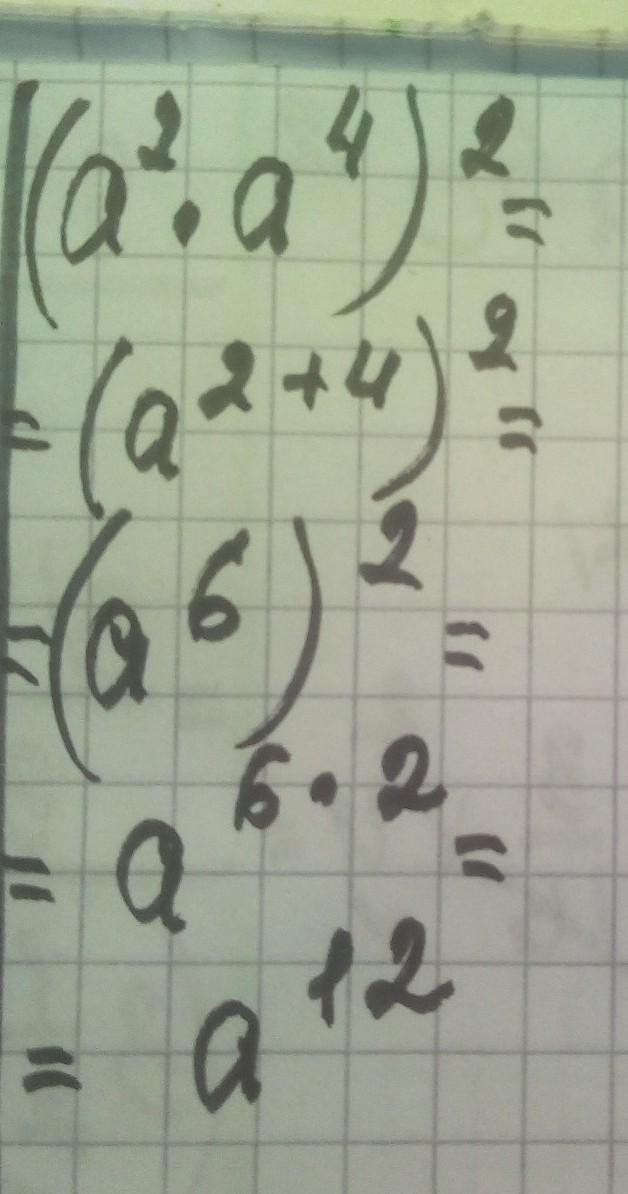 (a²·a⁴)²=
=(a²⁺⁴)²=
=(a⁶)²=
=a⁶·²=
=a¹²